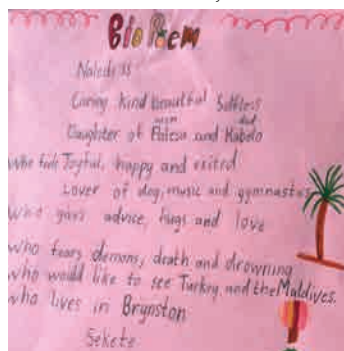 Bio Poem
Naledi is
Caring kind beautiful Selfless
mom dad
Daughter of Palesa and Kabelo
Who feels Joyful, happy and exited
Lover of dog, music and gymnastics
Who gives advice, hugs and love
Who fears demons, death and drowning
who would like to see Turkey and the Maldives.
who lives in Brynston
Sekete